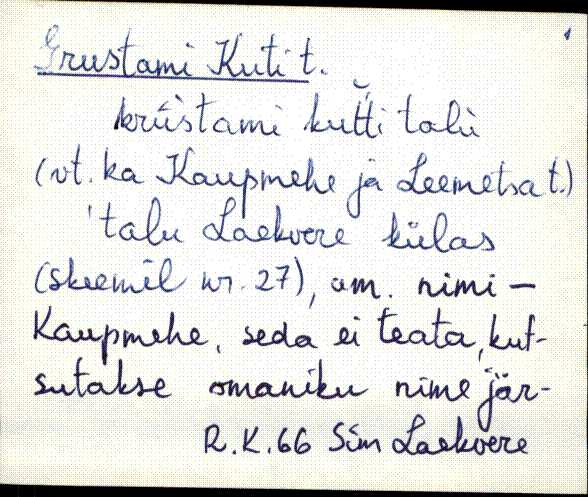 Grustami Kuti t.
krüstami kutti talu
(vt. ka Kaupmehe ja Leemetsa t.)
talu Laekvere külas
(skeemil nr. 27), am. nimi –
Kaupmehe, seda ei teata, kut-
sutakse omaniku nime jär-
R.K.66 Sim Laekvere